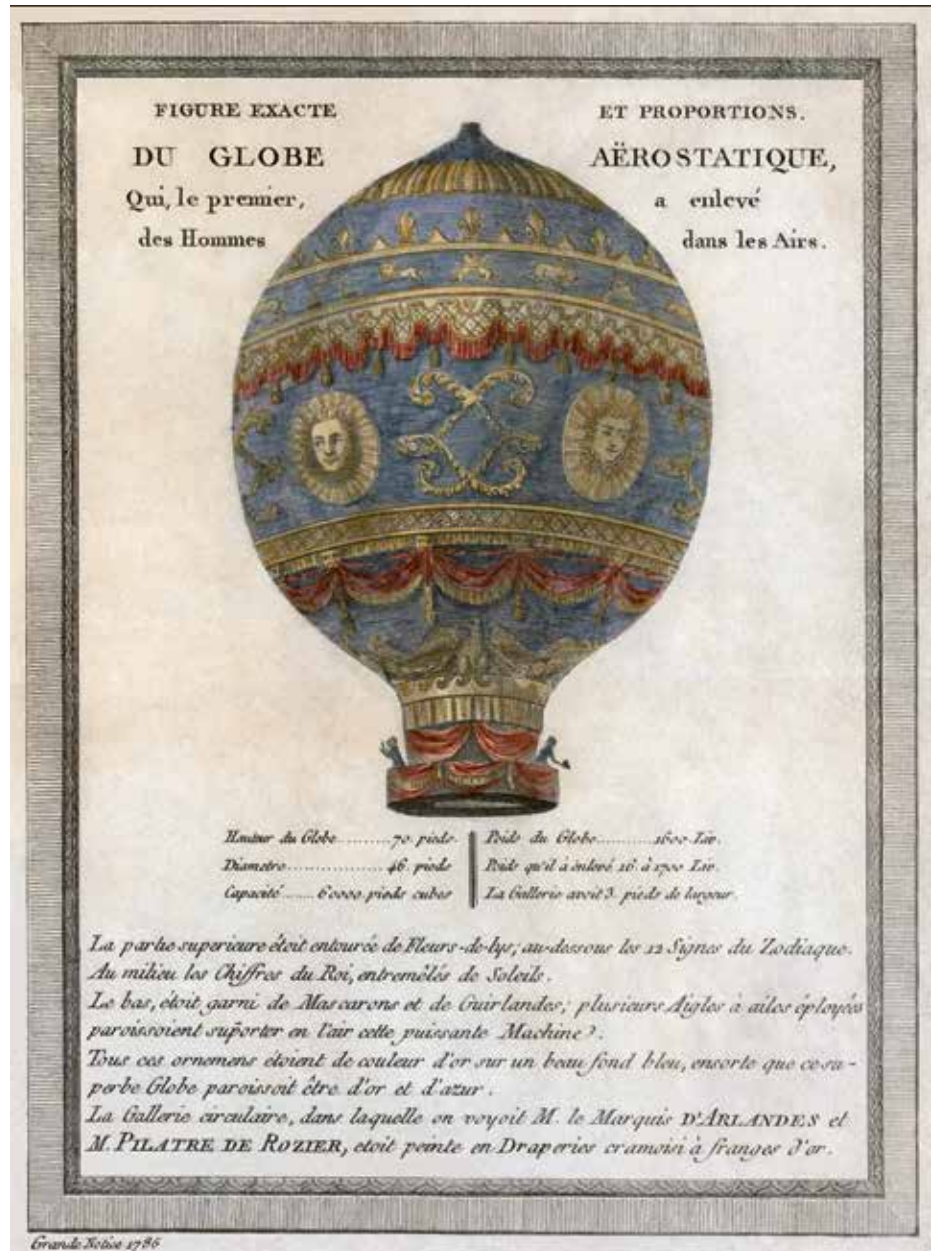 FIGURE EXACTE ET PROPORTIONS.
DU GLOBE AËROSTATIQUE,
Qui, le premier, a enlevé
des Hommes dans les Airs.
Hauteur du Globe..........70 pieds.
Diametre..................46 pieds
Capacité.......60000 pieds cubes
Poids du Globe..........1600 Liv.
Poids qu'il à enlevé 16 à 1700 Liv.
La Gallerie avoit 3 pieds de largeur.
La partie superieure étoit entourée de Fleurs-de-lys, au-dessous les 12 Signes du Zodiaque.
Au milieu les Chiffres du Roi, entremêlés de Soleils.
Le bas, étoit garni de Mascarons et de Guirlandes; plusieurs Aigles à ailes éployées
paroissoient suporter en l'air cette puissante Machine.
Tous ces ornemens étoient de couleur d'or sur un beau fond bleu, ensorte que ce su-
perbe Globe paroissoit être d'or et d'azur.
La Gallerie circulaire, dans laquelle on voyoit M. le Marquis D'ARLANDES et
M. PILATRE DE ROZIER, etoit peinte en Draperies cramoisi à franges d'or.
Grande Notice 1786